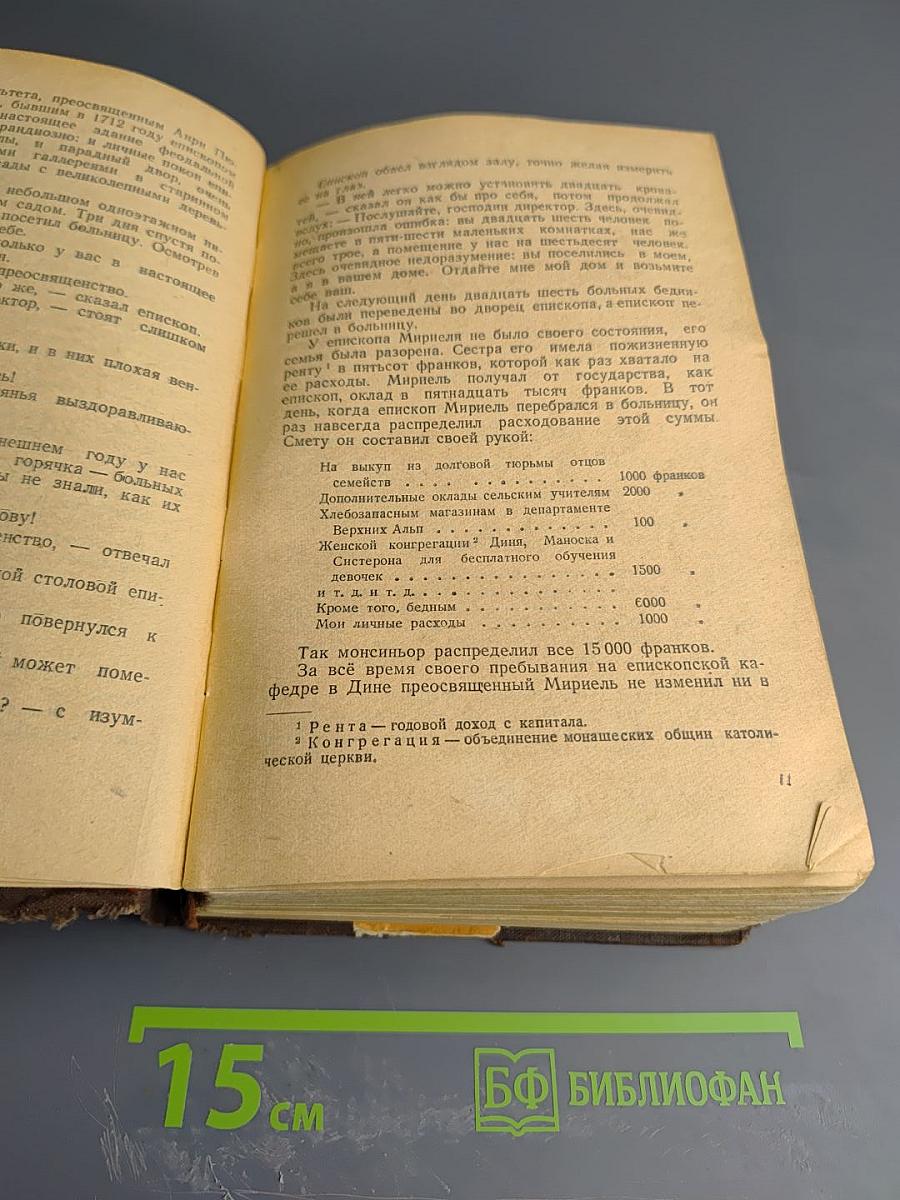 ьтета, преосвященным Анри Пю-
, бывшим в 1712 году епископом
настоящее здание феодальной
рандиозно: и личные покои епи-
лы, и парадный двор, очень
ми галлереями в старинном
ады с великолепными деревь-
небольшом одноэтажном
м садом. Три дня спустя по-
посетил больницу. Осмотрев
ебе.
олько у вас в настоящее
н.
преосвященство.
о же, — сказал епископ.
ктор, — стоят слишком
ки, и в них плохая вен-
ь!
янья выздоравливаю-
нешнем году у нас
горячка — больных
ы не знали, как их
ову!
енство, — отвечал
ой столовой епи-
повернулся к
может поме-
? — с изум-
Епископ обвел взглядом залу, точно желая измерить
ее на глаз.
— В ней легко можно установить двадцать крова-
тей, — сказал он как бы про себя, потом продолжал
вслух: — Послушайте, господин директор. Здесь, очевид-
но, произошла ошибка: вы двадцать шесть человек по-
мещаете в пяти-шести маленьких комнатках, нас же
всего трое, а помещение у нас на шестьдесят человек.
Здесь очевидное недоразумение: вы поселились в моем,
а я в вашем доме. Отдайте мне мой дом и возьмите
себе ваш.
На следующий день двадцать шесть больных бедня-
ков были переведены во дворец епископа, а епископ пе-
решел в больницу.
У епископа Мириеля не было своего состояния, его
семья была разорена. Сестра его имела пожизненную
ренту ¹ в пятьсот франков, которой как раз хватало на
ее расходы. Мириель получал от государства, как
епископ, оклад в пятнадцать тысяч франков. В тот
день, когда епископ Мириель перебрался в больницу, он
раз навсегда распределил расходование этой суммы.
Смету он составил своей рукой:
На выкуп из долговой тюрьмы отцов
семейств . . . . . . . . . . . . . . 1000 франков
Дополнительные оклады сельским учителям 2000 „
Хлебозапасным магазинам в департаменте
Верхних Альп . . . . . . . . . . . . . 100 „
Женской конгрегации ² Диня, Маноска и
Систерона для бесплатного обучения
девочек . . . . . . . . . . . . . . . . 1500 „
и т. д. и т. д. . . . . . . . . . . . . . .
Кроме того, бедным . . . . . . . . . . . 6000 „
Мои личные расходы . . . . . . . . . . 1000 „
Так монсиньор распределил все 15 000 франков.
За всё время своего пребывания на епископской ка-
федре в Дине преосвященный Мириель не изменил ни в
¹ Рента — годовой доход с капитала.
² Конгрегация — объединение монашеских общин католи-
ческой церкви.
11
15 см
БФ БИБЛИОФАН